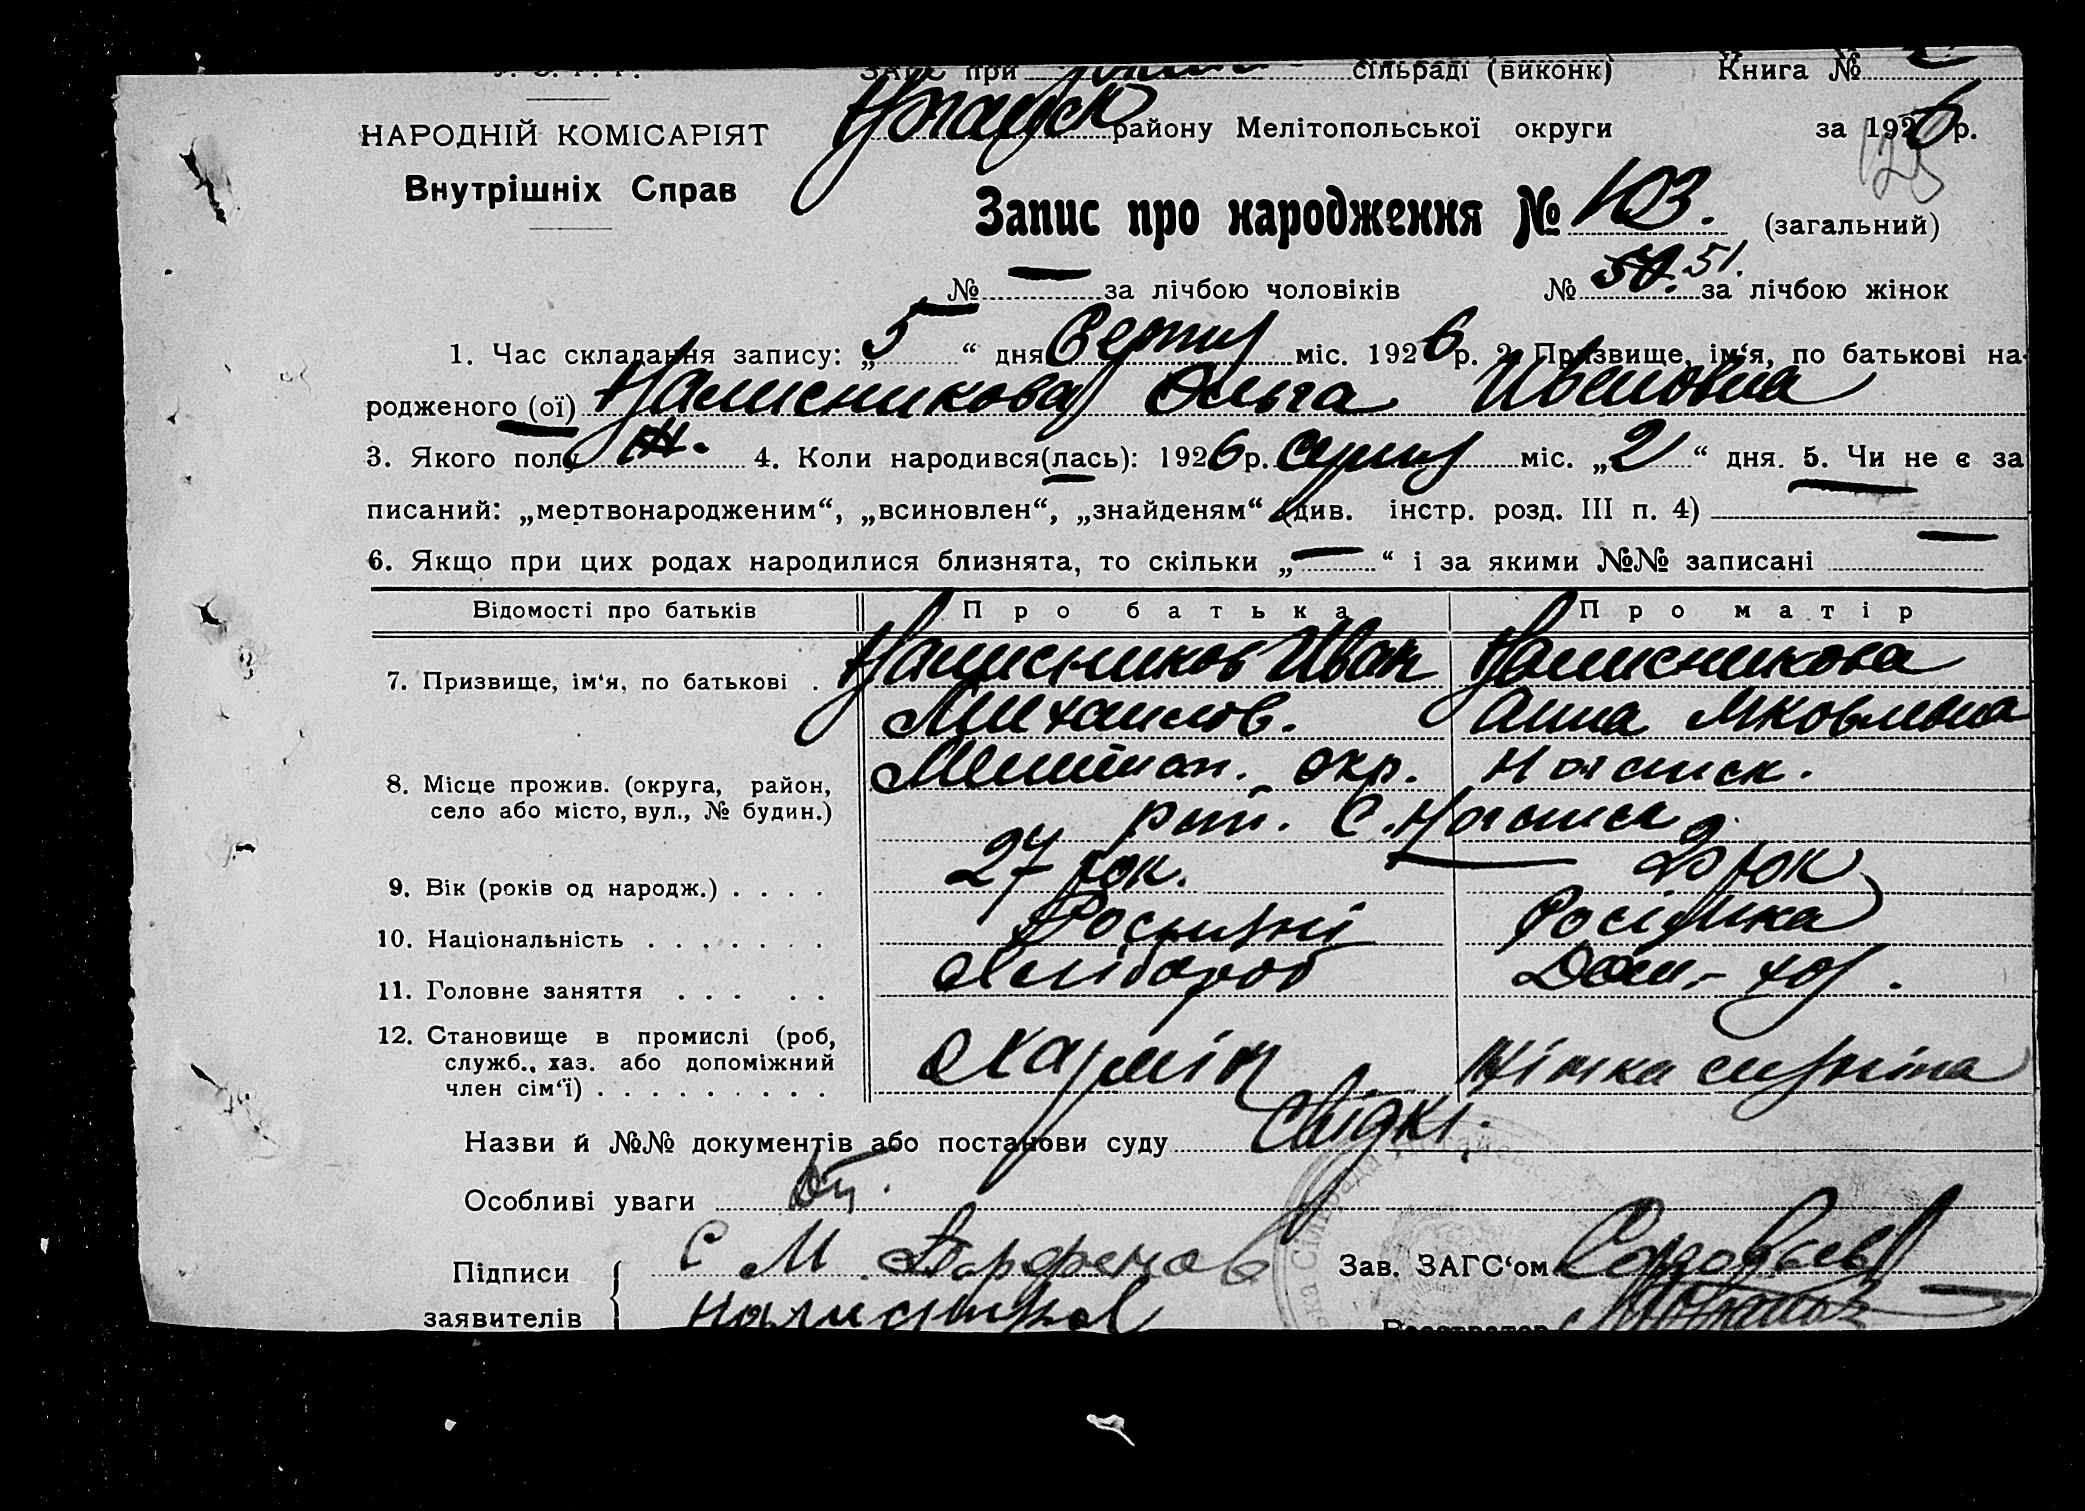 У. С. Р. Р. ЗАГС при сільраді (виконк) Книга №
НАРОДНІЙ КОМІСАРІЯТ
Внутрішніх Справ
Ногайск району Мелітопольської округи за 1926 р.
125
Запис про народження № 103. (загальний)
№ — за лічбою чоловіків № 50. 51. за лічбою жінок
1. Час складання запису: „5“ дня Серпня міс. 1926 р. 2. Призвище, ім‘я, по батькові на-
родженого (ої) Налисникова Ольга Ивановна
3. Якого полу ж. 4. Коли народився(лась): 1926 р. серпня міс. „2“ дня. 5. Чи не є за
писаний: „мертвонародженим“, „всиновлен“, „знайденям“ (див. інстр. розд. III п. 4)
6. Якщо при цих родах народилися близнята, то скільки „—“ і за якими №№ записані —
Відомості про батьків Про батька Про матір
7. Призвище, ім‘я, по батькові . Налисников Иван Налисникова
Михайлов. Анна Яковлевна
8. Місце прожив. (округа, район,
село або місто, вул., № будин.)
Мелітоп. окр. Ногайск.
рай. С. Ногайск
9. Вік (років од народж.) . . . . 27 рок. 20 рок
10. Національність . . . . . . . Росіянка
11. Головне заняття . . . . . Хлібороб Дом. - хоз.
12. Становище в промислі (роб,
служб., хаз. або допоміжний
член сім‘ї) . . . . . . . . .
Назви й №№ документів або постанови суду Свідкі.
Особливі уваги
Підписи
заявителів
С М Парфенов
Налисников
Зав. ЗАГС‘ом
Реєстратор